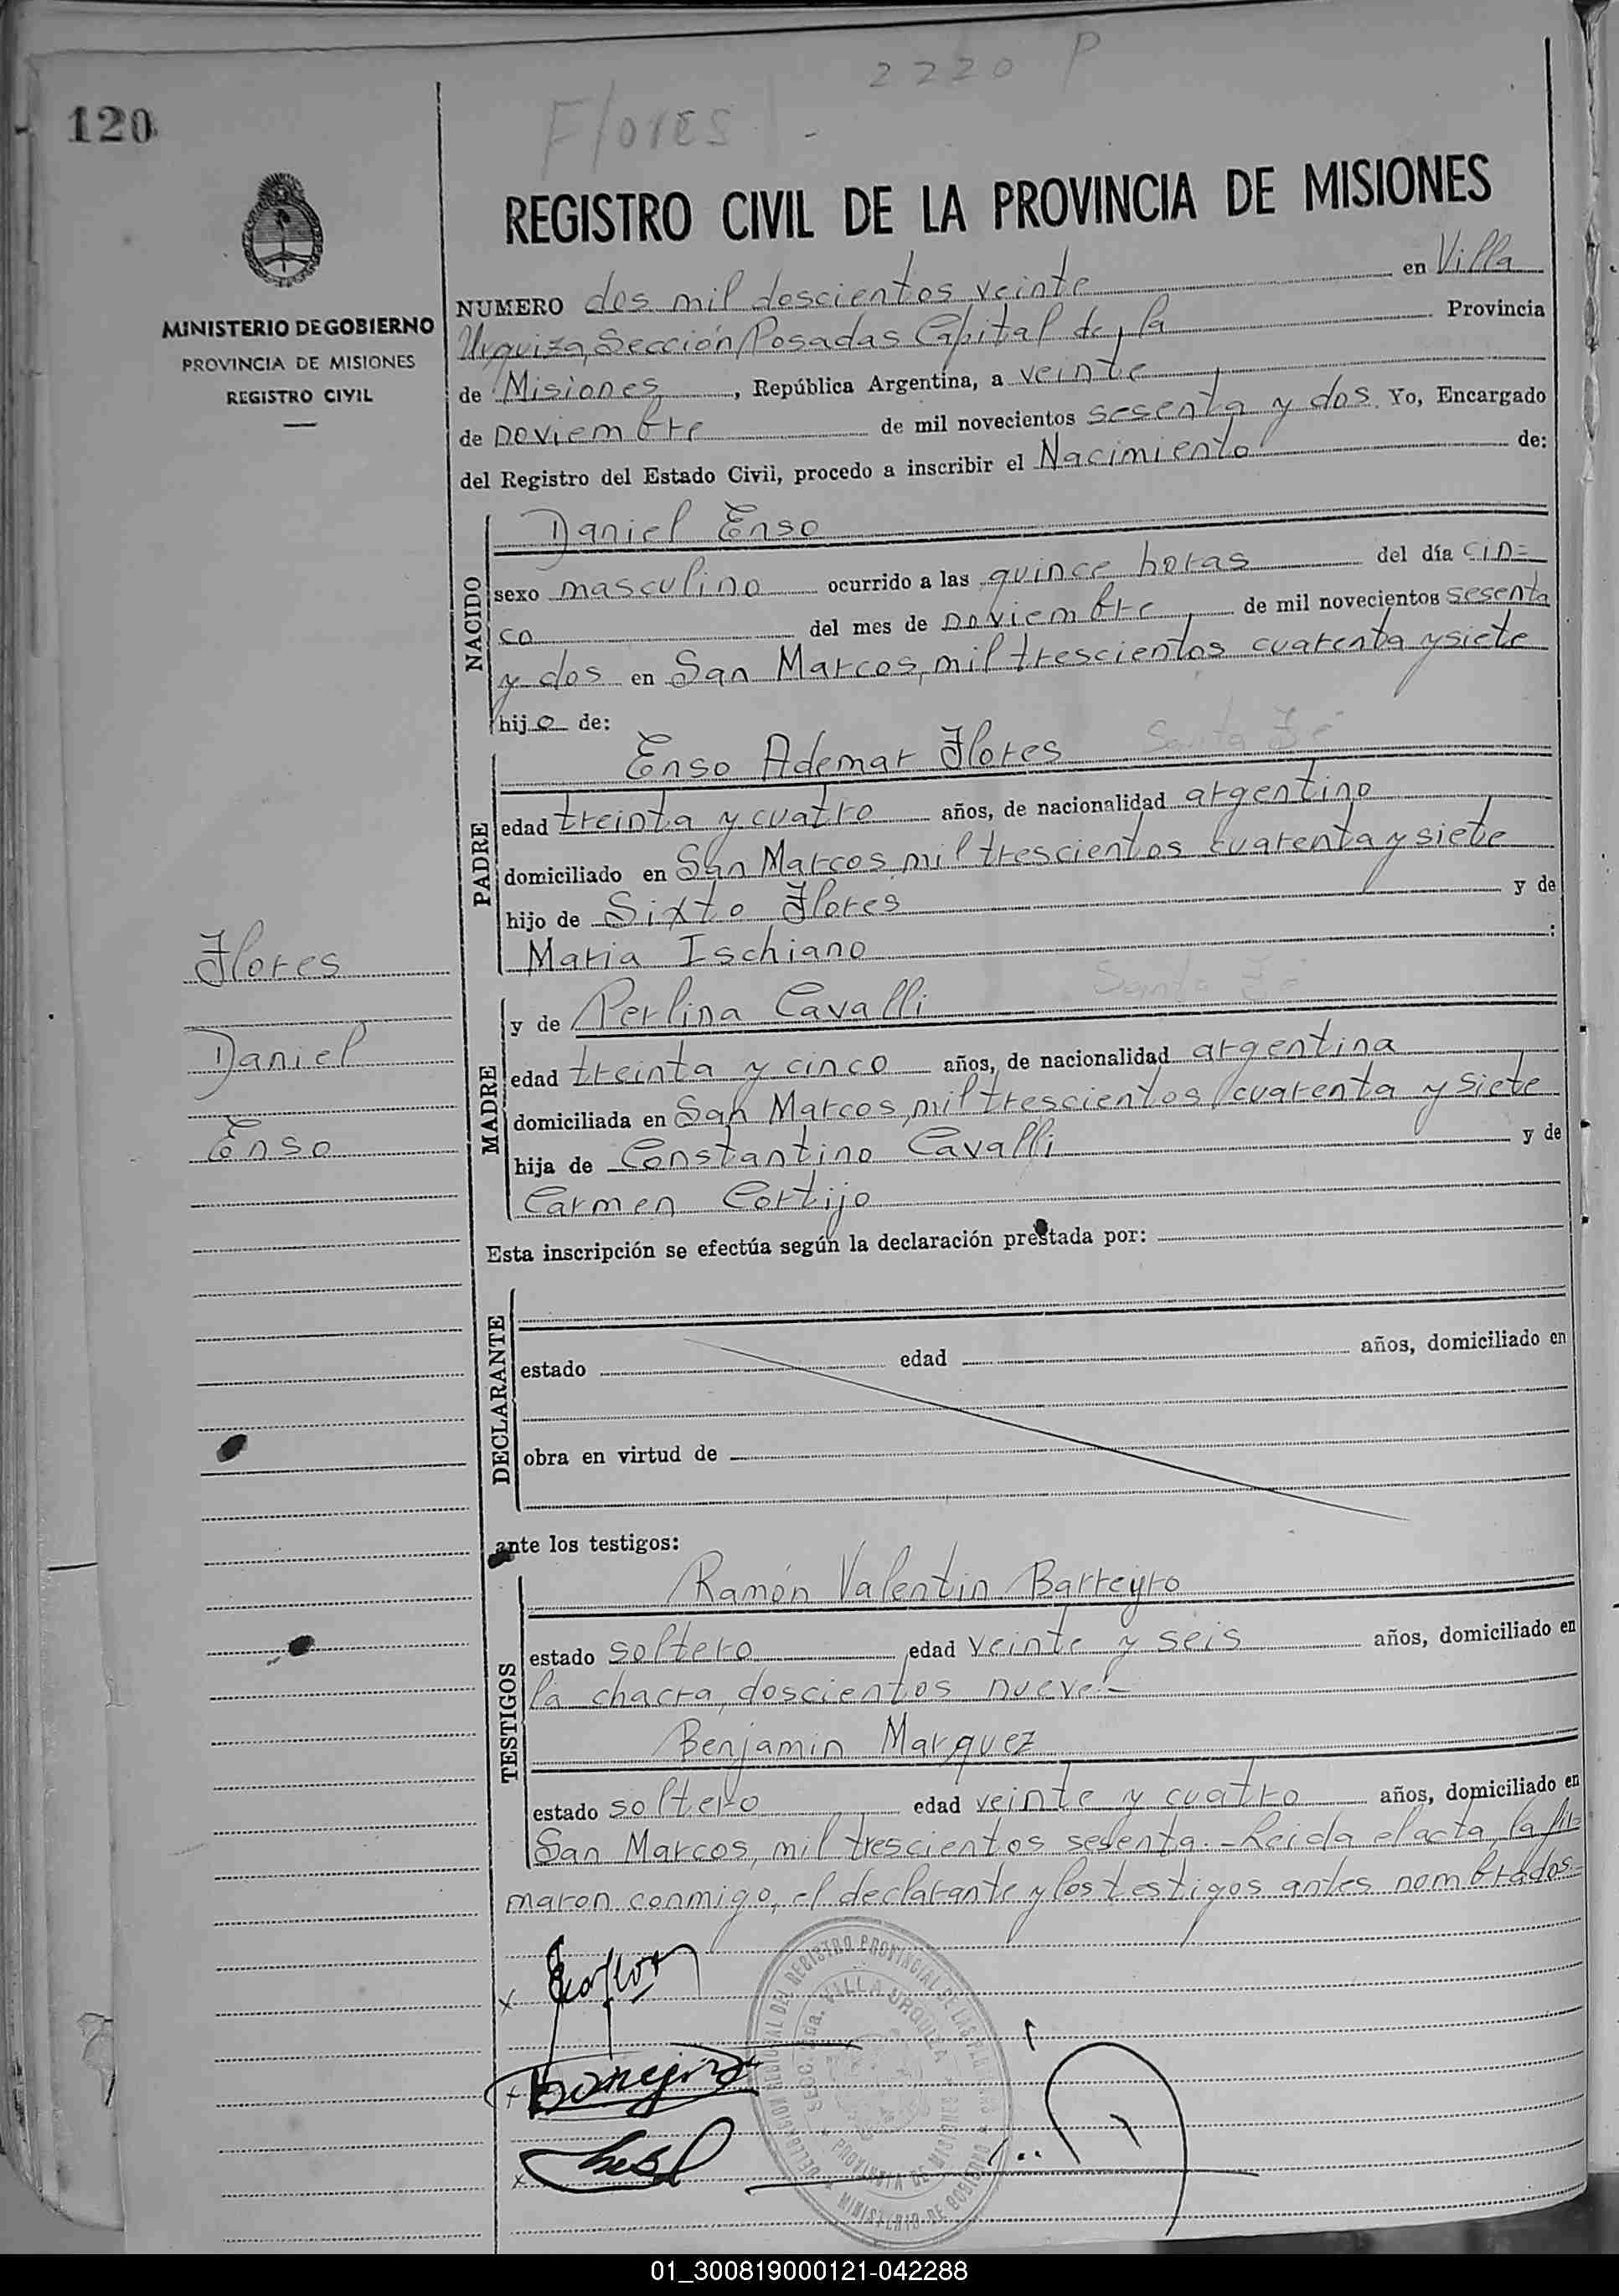 2220 P
120
Flores
REGISTRO CIVIL DE LA PROVINCIA DE MISIONES
MINISTERIO DE GOBIERNO
PROVINCIA DE MISIONES
REGISTRO CIVIL
NUMERO dos mil doscientos veinte en Villa
Urquiza, Sección Posadas Capital de la Provincia
de Misiones, República Argentina, a veinte
de noviembre de mil novecientos sesenta y dos. Yo, Encargado
del Registro del Estado Civil, procedo a inscribir el Nacimiento de:
NACIDO
Daniel Enso
sexo masculino ocurrido a las quince horas del día cin=
co del mes de noviembre de mil novecientos sesenta
y dos en San Marcos, mil trescientos cuarenta y siete
hijo de:
PADRE
Enso Ademar Flores Santa Fé
edad treinta y cuatro años, de nacionalidad argentino
domiciliado en San Marcos mil trescientos cuarenta y siete
hijo de Sixto Flores y de
Maria Ischiano :
Flores
Daniel
Enso
MADRE
y de Perlina Cavalli Santa Fé
edad treinta y cinco años, de nacionalidad argentina
domiciliada en San Marcos, mil trescientos cuarenta y siete
hija de Constantino Cavalli y de
Carmen Cortijo
Esta inscripción se efectúa según la declaración prestada por:
DECLARANTE
estado edad años, domiciliado en
obra en virtud de
ante los testigos:
TESTIGOS
Ramón Valentin Barreyro
estado soltero edad veinte y seis años, domiciliado en
la chacra, doscientos nueve.-
Benjamin Marquez
estado soltero edad veinte y cuatro años, domiciliado en
San Marcos, mil trescientos sesenta.-Leida el acta, la fir=
maron conmigo, el declarante y los testigos antes nombrados=
DELEGACION REGIONAL DEL REGISTRO PROVINCIAL DE LAS PERSONAS
SECC. 2da. VILLA URQUIZA
PROVINCIA DE MISIONES
MINISTERIO DE GOBIERNO
01_300819000121-042288